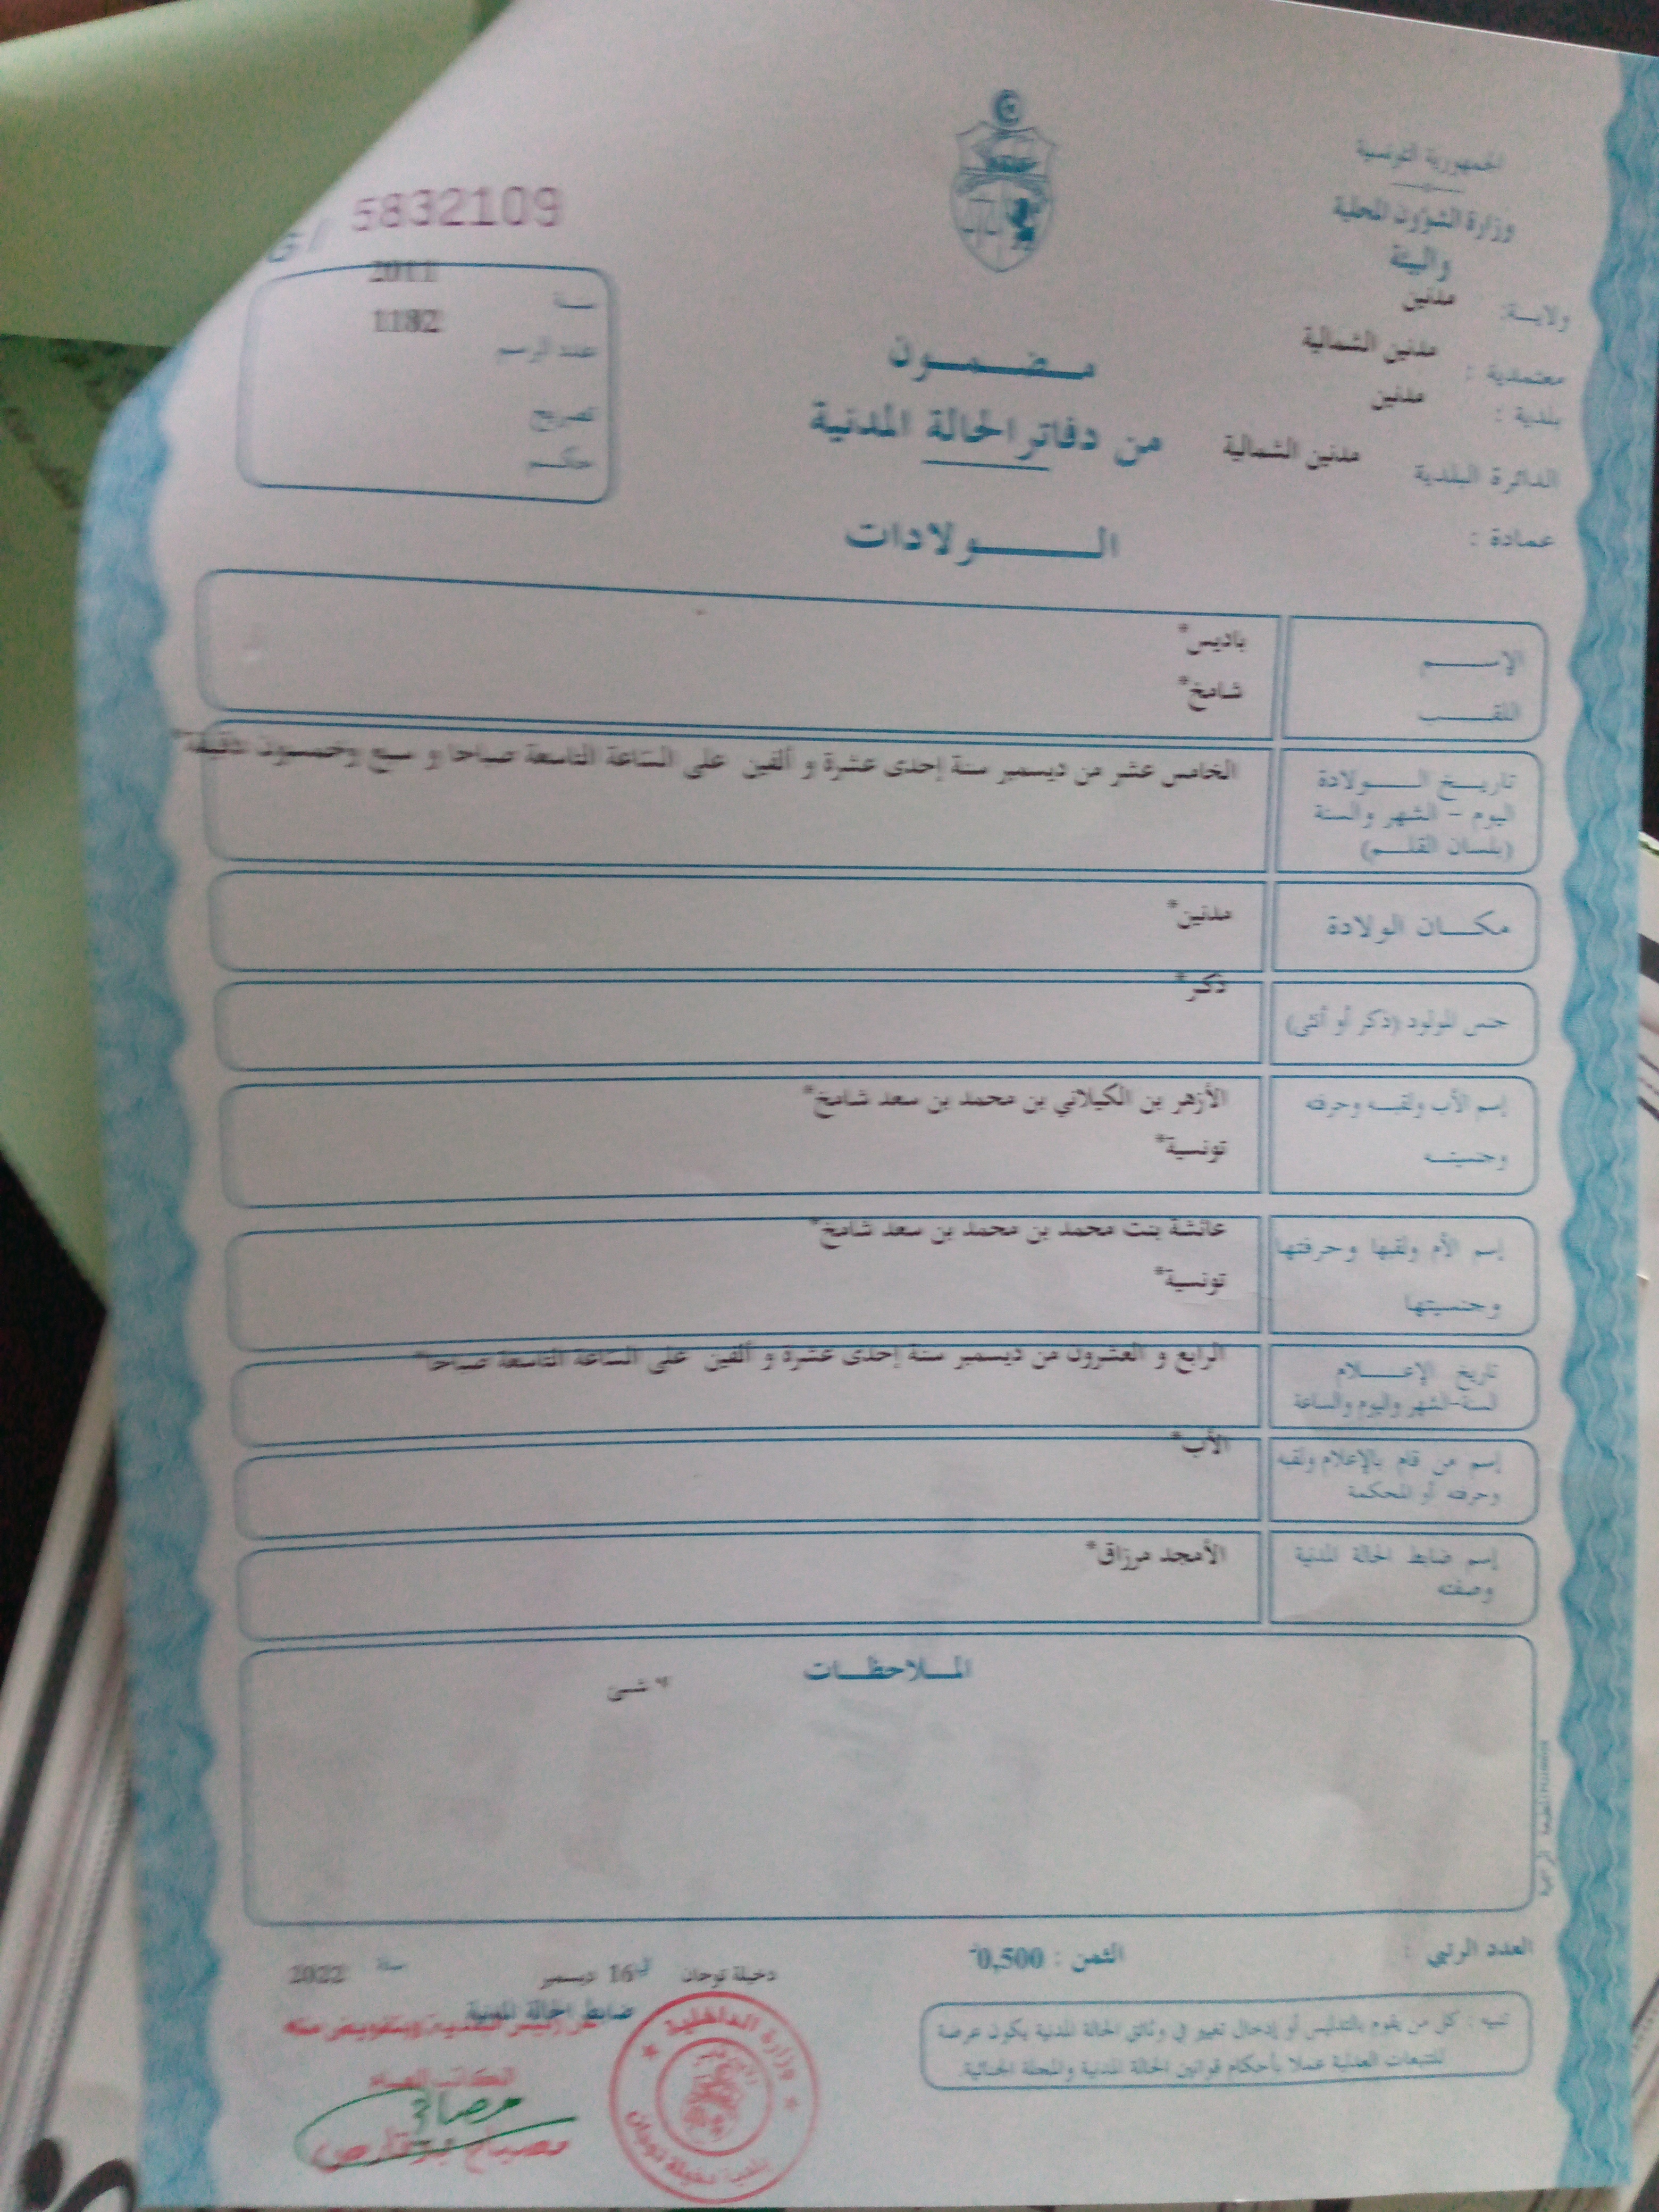 الجمهورية التونسية
وزارة الشؤون المحلية
والبيئة
ولايـة: مدنين
معتمدية : مدنين الشمالية
بلدية : مدنين
الدائرة البلدية مدنين الشمالية
عمادة :
5832109
سنة 2011
عدد الرسم 1182
تصريح
حكم
مضمون
من دفاتر الحالة المدنية
الولادات
الإسم باديس*
اللقب شامخ*
تاريخ الولادة
اليوم - الشهر والسنة
(بلسان القلم)
الخامس عشر من ديسمبر سنة إحدى عشرة و ألفين على الساعة التاسعة صباحا و سبع وخمسون دقيقة*
مكان الولادة مدنين*
جنس المولود (ذكر أو أنثى) ذكر*
إسم الأب ولقبه وحرفته الأزهر بن الكيلاني بن محمد بن سعد شامخ*
وجنسيته تونسية*
إسم الأم ولقبها وحرفتها عائشة بنت محمد بن محمد بن سعد شامخ*
وجنسيتها تونسية*
تاريخ الإعلام
لسنة-الشهر واليوم والساعة
الرابع و العشرون من ديسمبر سنة إحدى عشرة و ألفين على الساعة التاسعة صباحا*
إسم من قام بالإعلام ولقبه
وحرفته أو المحكمة
الأب*
إسم ضابط الحالة المدنية
وصفته
الأمجد مرزاق*
الملاحظات
شئ
العدد الرتبي :
الثمن : 0,500
دخيلة توجان في 16 ديسمبر سنة 2022
ضابط الحالة المدنية
تنبيه : كل من يقوم بالتدليس أو إدخال تغيير في وثائق الحالة المدنية يكون عرضة
للتتبعات العدلية عملا بأحكام قوانين الحالة المدنية والمجلة الجنائية.
عن رئيس البلدية وبتفويض منه
الكاتب العام
وزارة الداخلية
بلدية دخيلة توجان